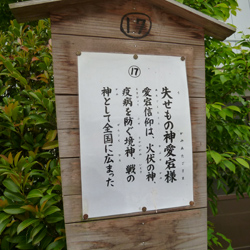 17
⑰
失せもの神愛宕様
愛宕信仰は、火伏の神、
疫病を防ぐ境神、戦の
神として全国に広まった